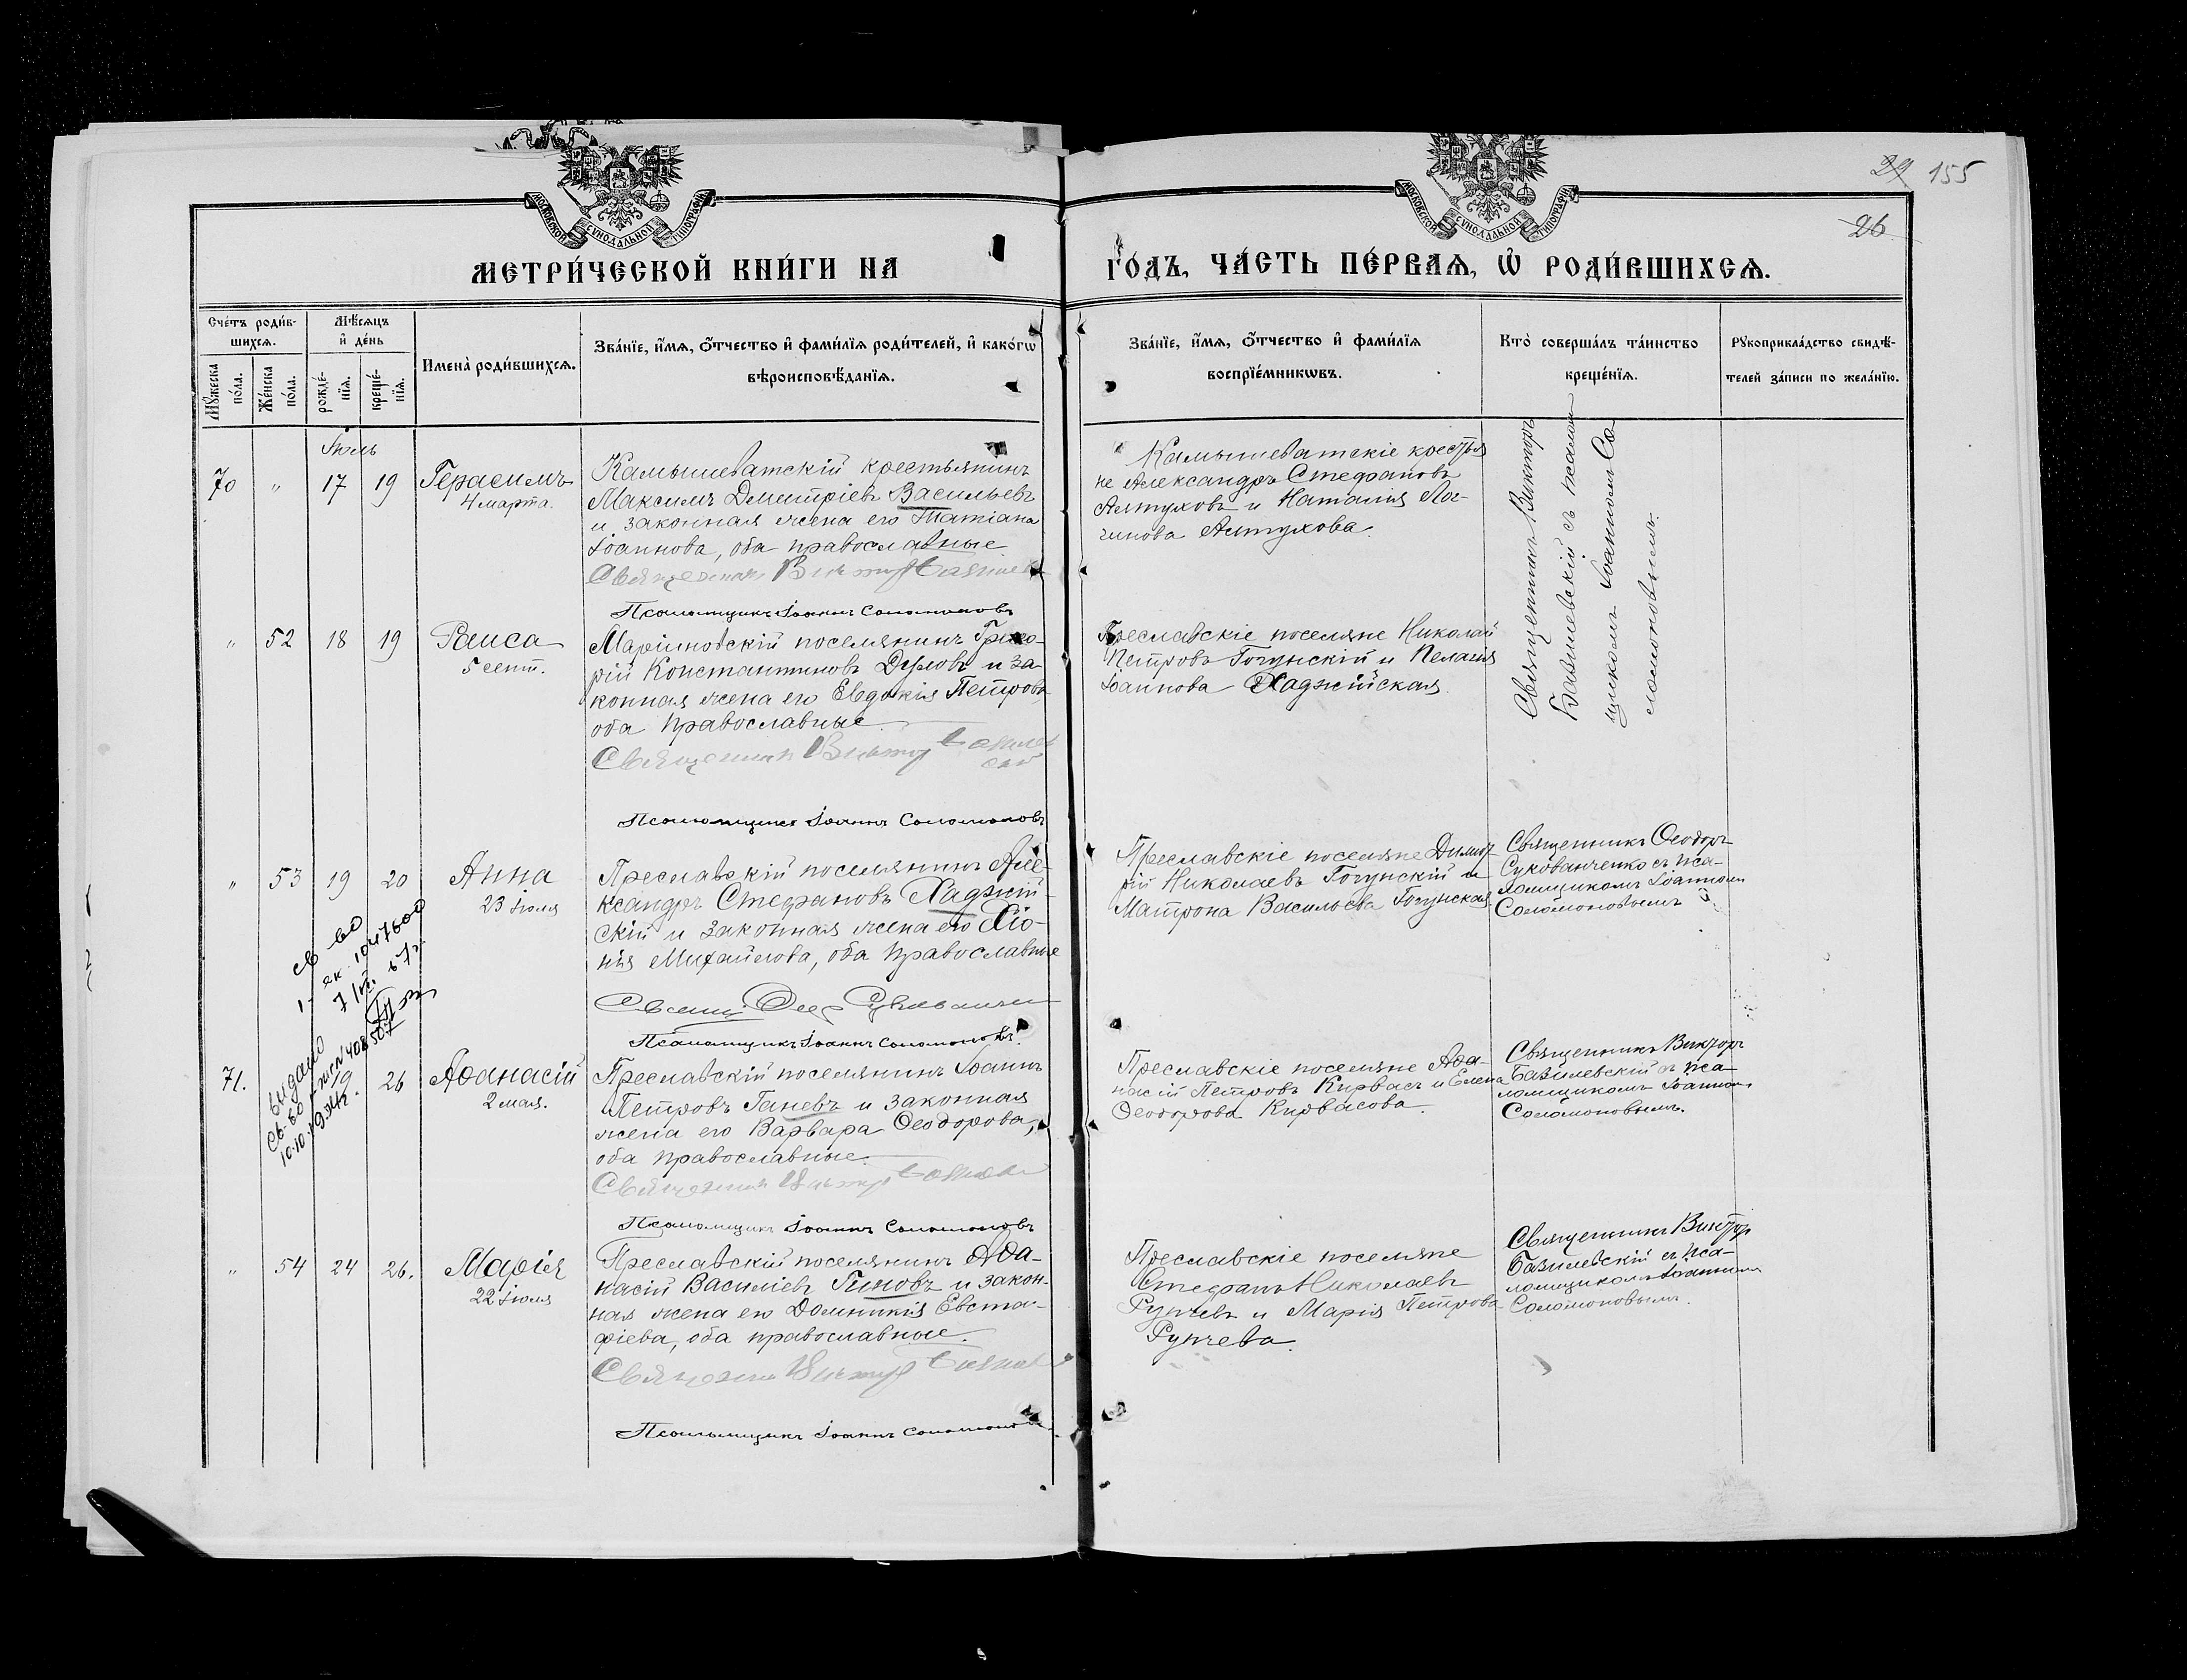 29 155
26
МОСКОВСКОЙ СѴНОДАЛЬНОЙ ТИПОГРАФІИ
МОСКОВСКОЙ СѴНОДАЛЬНОЙ ТИПОГРАФІИ
МЕТРИ́ЧЕСКОЙ КНИ́ГИ НА
ГО́ДЪ, ЧА́СТЬ ПЕ́РВАѦ, Ѡ҆ РОДИ́ВШИХСѦ.
Сче́тъ роди́в-
шихсѧ.
Мꙋ́жеска
по́ла.
Же́нска
по́ла.
Мѣ́сѧцъ
и҆ де́нь
рожде́-
нїѧ.
креще́-
нїѧ.
Имена̀ роди́вшихсѧ.
Зва́нїе, и҆́мѧ, ѻ҆́тчество и҆ фами́лїѧ роди́телей, и҆ како́гѡ
вѣроисповѣ́данїѧ.
Зва́нїе, и҆́мѧ, ѻ҆́тчество и҆ фами́лїѧ
воспрїе́мникѡвъ.
Кто̀ соверша́лъ та́инство
креще́нїѧ.
Рꙋкоприкла́дство свидѣ́-
телей за́писи по жела́нїю.
Іюль
70 " 17 19 Герасимъ
4 марта.
Камышеватскій крестьянинъ
Максимъ Димитріевъ Васильевъ
и законная жена его Татіана
Іоаннова, оба православные
Священникъ Викторъ Базилев
Псаломщикъ Іоаннъ Соломоновъ
Камышеватскіе крестья
не Александръ Стефановъ
Алтуховъ и Наталія Лог-
гинова Алтухова.
Священникъ Викторъ
Базилевскій съ псалом
щикомъ Іоанномъ Со
ломоновымъ.
" 52 18 19 Раиса
5 сент.
Маріиновскій поселянинъ Григо-
рій Константиновъ Дерловъ и за-
конная жена его Евдокія Петрова
оба православные
Священникъ Викторъ Базилев
скій
Псаломщикъ Іоаннъ Соломоновъ
Преславскіе поселяне Николай
Петровъ Гогунскій и Пелагія
Іоаннова Хаджійская.
" 53 19 20 Анна
23 Іюля
Преславскій поселянинъ Але-
ксандръ Стефановъ Хаджій-
скій и законная жена его Хіо-
нія Михайлова, оба православные
Псаломщикъ Іоаннъ Соломоновъ
Преславскіе поселяне Димит
рій Николаевъ Гогунскій и
Матрона Васильева Гогунская.
Священникъ Ѳеодоръ
Сукованченко съ пса-
ломщикомъ Іоанномъ
Соломоновымъ
св-во
выдано
71. 19 26 Аѳанасій
2 мая.
Преславскій поселянинъ Іоаннъ
Петровъ Ганевъ и законная
жена его Варвара Ѳеодорова,
оба православные.
Священникъ Викторъ Базилев
Псаломщикъ Іоаннъ Соломоновъ
Преславскіе поселяне Аѳа-
насій Петровъ Кирвасъ и Елена
Ѳеодорова Кирвасова.
Священникъ Викторъ
Базилевскій съ пса-
ломщикомъ Іоанномъ
Соломоновымъ.
" 54 24 26. Марія
22 Іюля
Преславскій поселянинъ Аѳа-
насій Василіевъ Гиновъ и закон-
ная жена его Домникія Евста-
фіева, оба православные.
Священникъ Викторъ Базилев
Псаломщикъ Іоаннъ Соломоновъ
Преславскіе поселяне
Стефанъ Николаевъ
Рупчевъ и Марія Петрова
Рупчева.
Священникъ Викторъ
Базилевскій съ пса-
ломщикомъ Іоанномъ
Соломоновымъ.